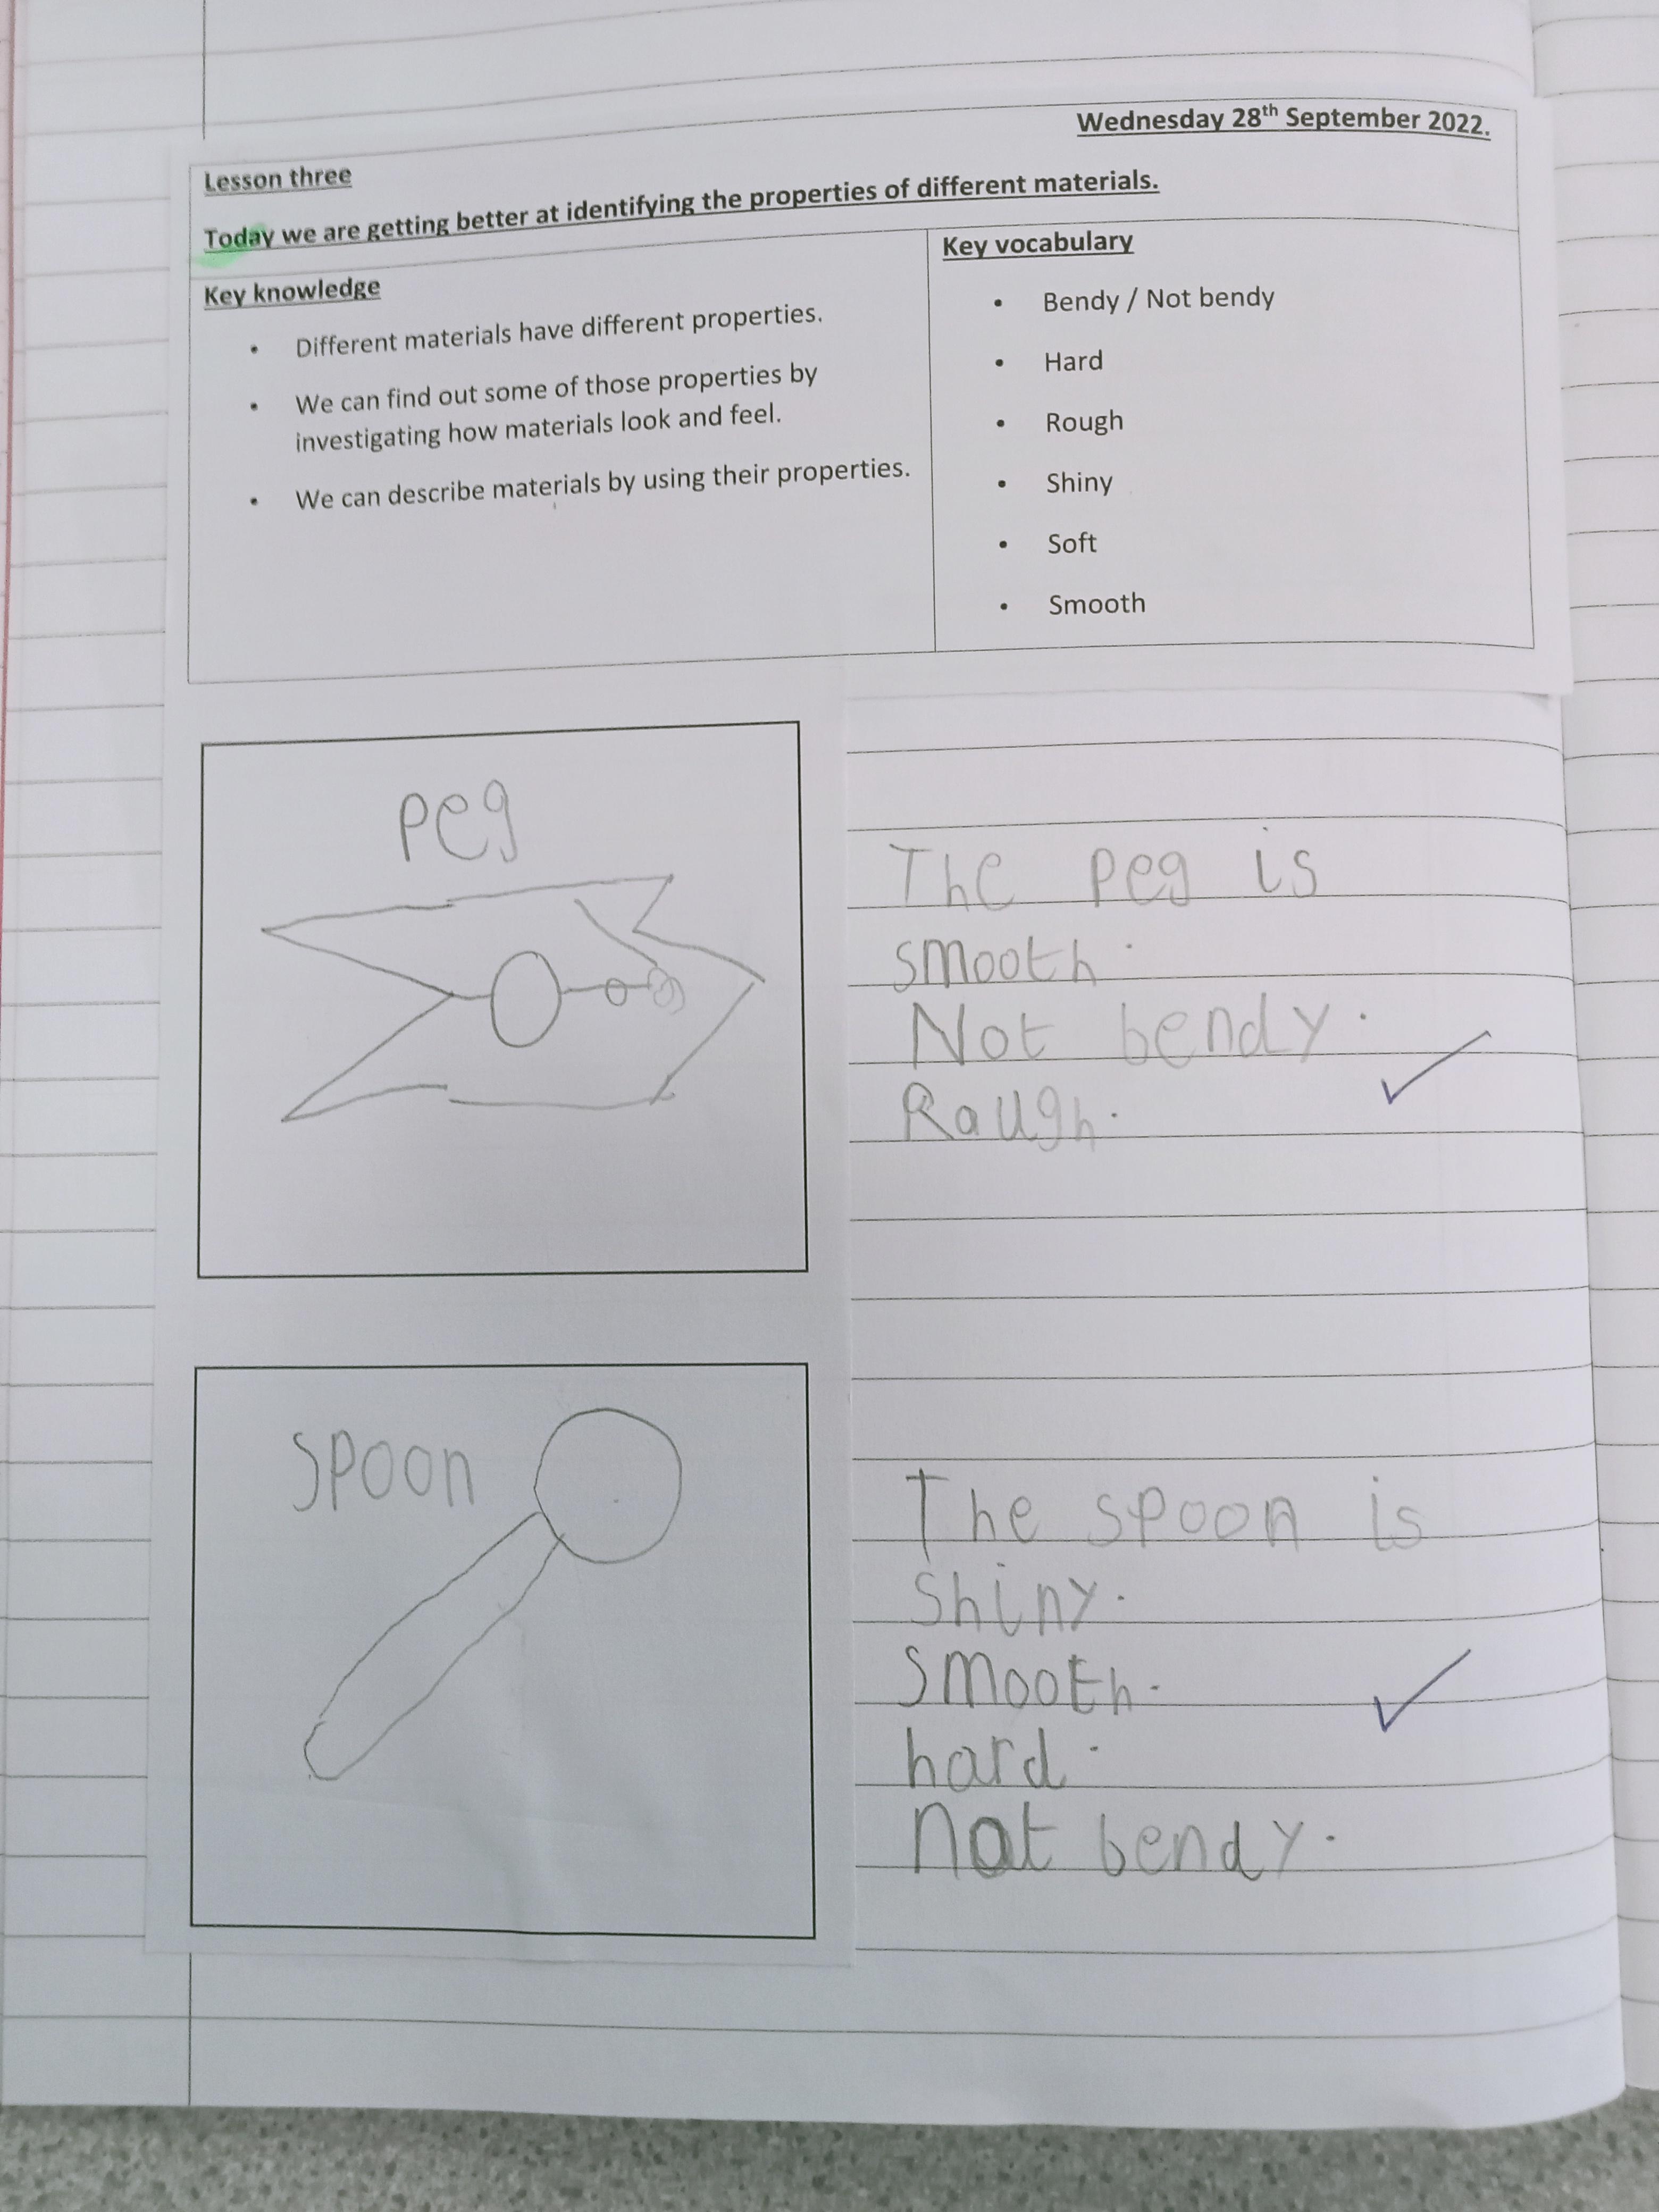 Wednesday 28th September 2022.
Lesson three
Today we are getting better at identifying the properties of different materials.
Key knowledge
• Different materials have different properties.
• We can find out some of those properties by
investigating how materials look and feel.
• We can describe materials by using their properties.
Key vocabulary
• Bendy / Not bendy
• Hard
• Rough
• Shiny
• Soft
• Smooth
peg
The peg is
smooth.
Not bendy.
Raugh.
spoon
The spoon is
shiny.
smooth.
hard.
not bendy.